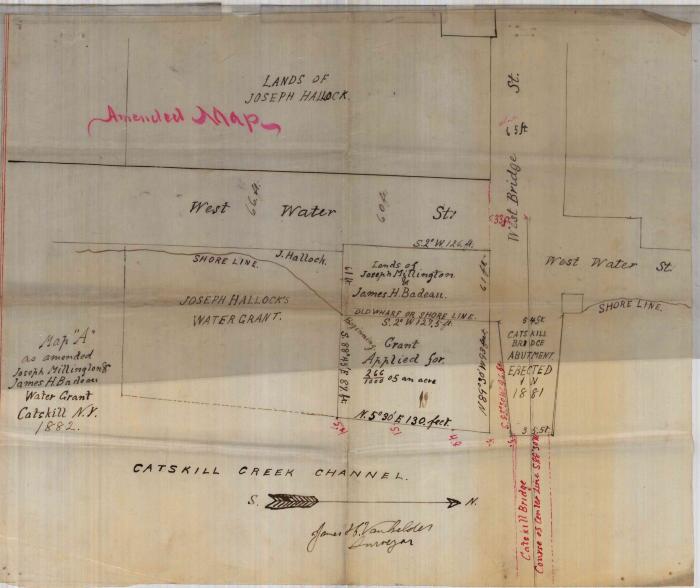 LANDS OF
JOSEPH HALLOCK.
Amended Map
St.
65 ft
West Bridge
West Water Str
66 ft.
60 ft.
33 ft.
S. 2° W. 126 ft.
SHORE LINE.
J. Hallock.
Lands of
Joseph Millington
&
James H. Badeau.
61 ft.
61 ft.
West Water St.
SHORE LINE.
JOSEPH HALLOCK'S
WATER GRANT.
OLD WHARF OR SHORE LINE.
S. 2° W 127,5 ft.
Beginning
S. 88°45' E. 87 ft.
Grant
Applied for
266
1000 of an acre
N. 5°30' E 130. feet.
54 ft.
CATSKILL
BRIDGE
ABUTMENT
ERECTED
IN
1881
35 ft.
Map "A"
as amended
Joseph Millington &
James H. Badeau
Water Grant
Catskill N.Y.
1882.
CATSKILL CREEK CHANNEL.
S. N.
James H. Van Gelder
Surveyor
Catskill Bridge
Course of Center Line